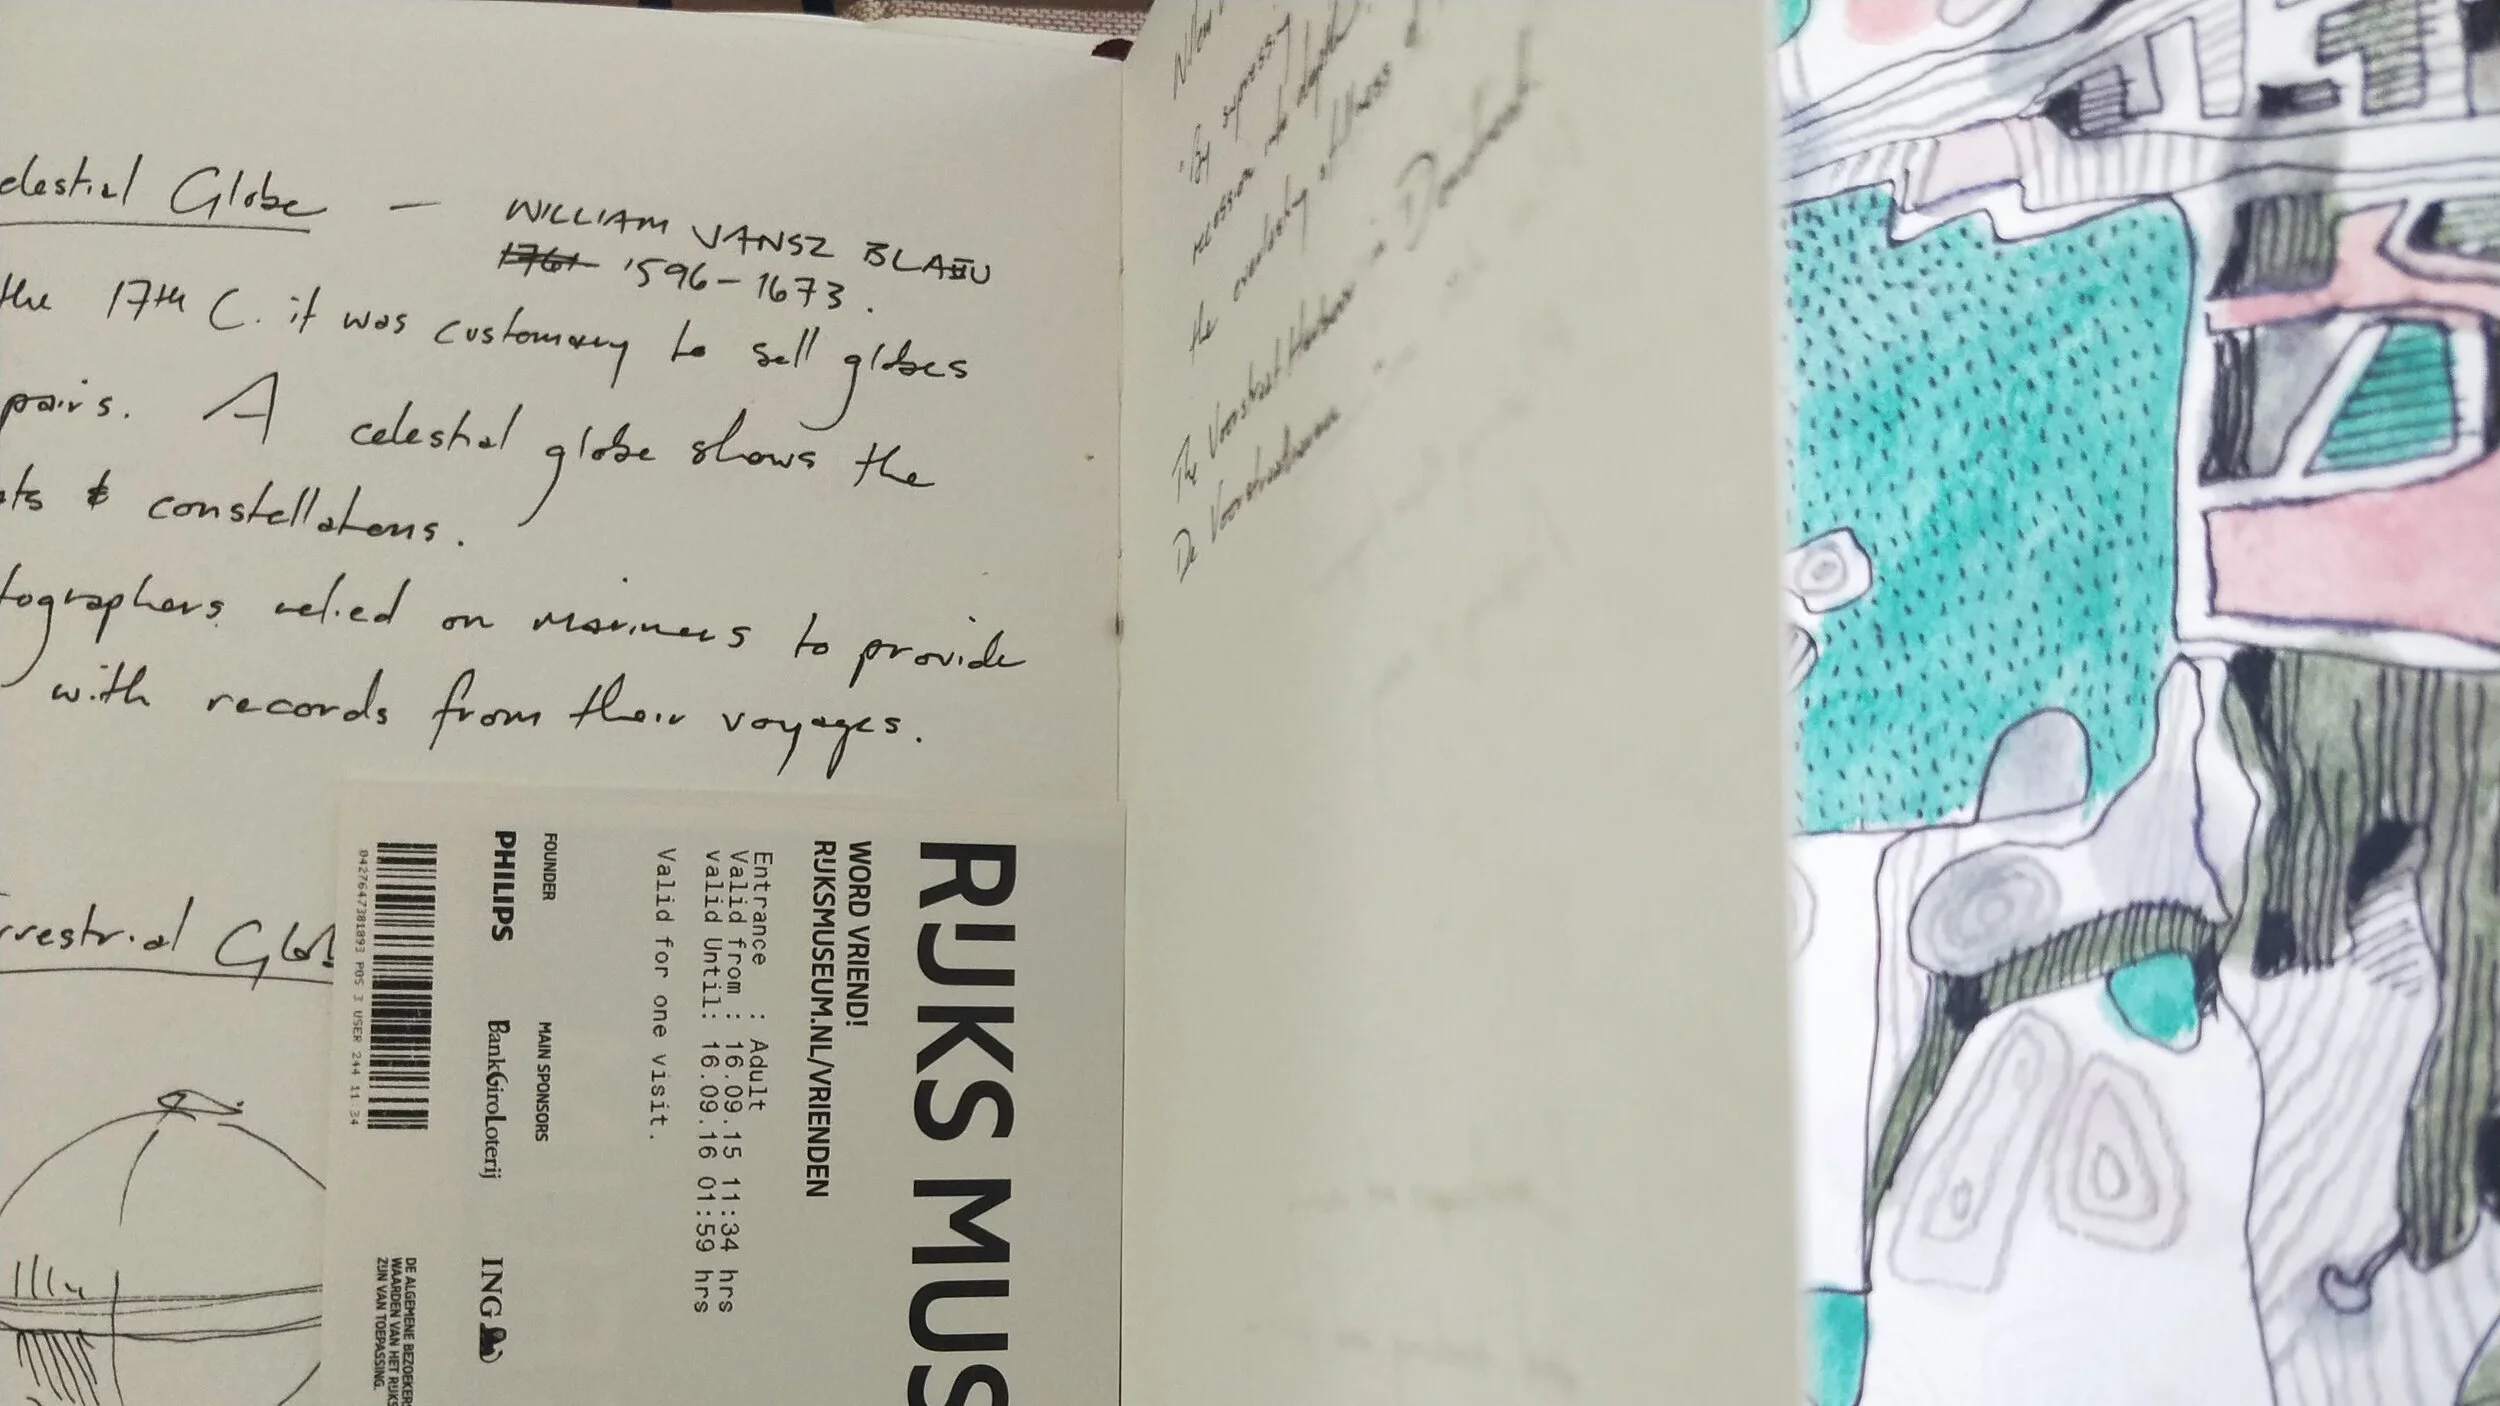 elestial Globe — WILLIAM VANSZ BLAEU
1596-1673.
the 17th C. it was customary to sell globes
pairs. A celestial globe shows the
ts & constellations.
tographers relied on mariners to provide
with records from their voyages.
rrestrial Glo
RIJKS MUS
WORD VRIEND!
RIJKSMUSEUM.NL/VRIENDEN
Entrance : Adult
Valid from : 16.09.15 11:34 hrs
Valid Until: 16.09.16 01:59 hrs
Valid for one visit.
FOUNDER
PHILIPS
MAIN SPONSORS
BankGiroLoterij
ING
DE ALGEMENE BEZOEKERS
WAARDEN VAN HET RIJKS
ZIJN VAN TOEPASSING.
0427647381893 POS 3 USER 244 11:34
By
the of
The in
De